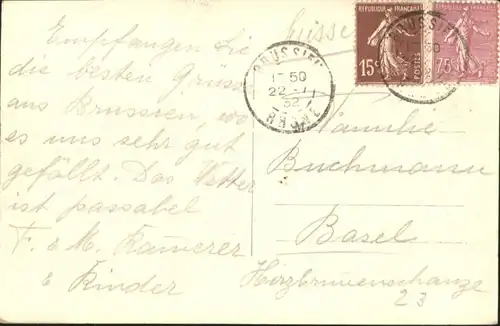 Empfangen Sie
die besten Grüsse
aus Brussien, wo
es uns sehr gut
gefällt. Das Wetter
ist passabel
F. & M. Kamerer
& Kinder
Suisse
REPUBLIQUE FRANÇAISE
15c
POSTES
REPUBLIQUE FRANÇAISE
75c
BRUSSIEU
1-50
22-7
32
RHONE
BRUSSIEU
50
Familie
Buchmann
Basel
Hirzbrunnenschanze
23